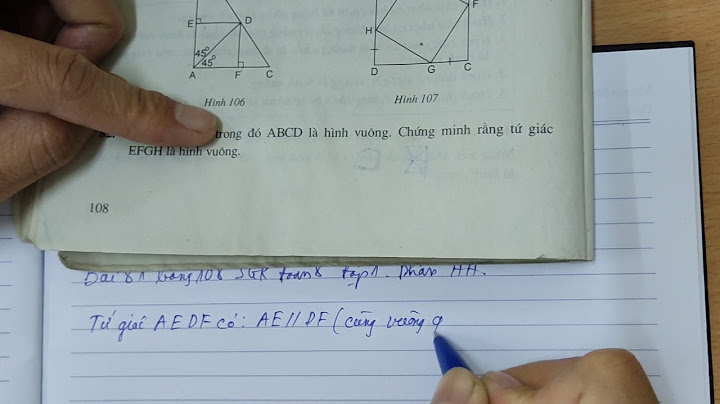 E D
45° 45°
A F C
Hình 106
H F
D G C
Hình 107
trong đó ABCD là hình vuông. Chứng minh rằng tứ giác
EFGH là hình vuông.
108
Bài 81 trang 108 SGK toán 8 tập 1. Phần HH.
Tứ giác AEDF có: AE // DF (cùng vuông g